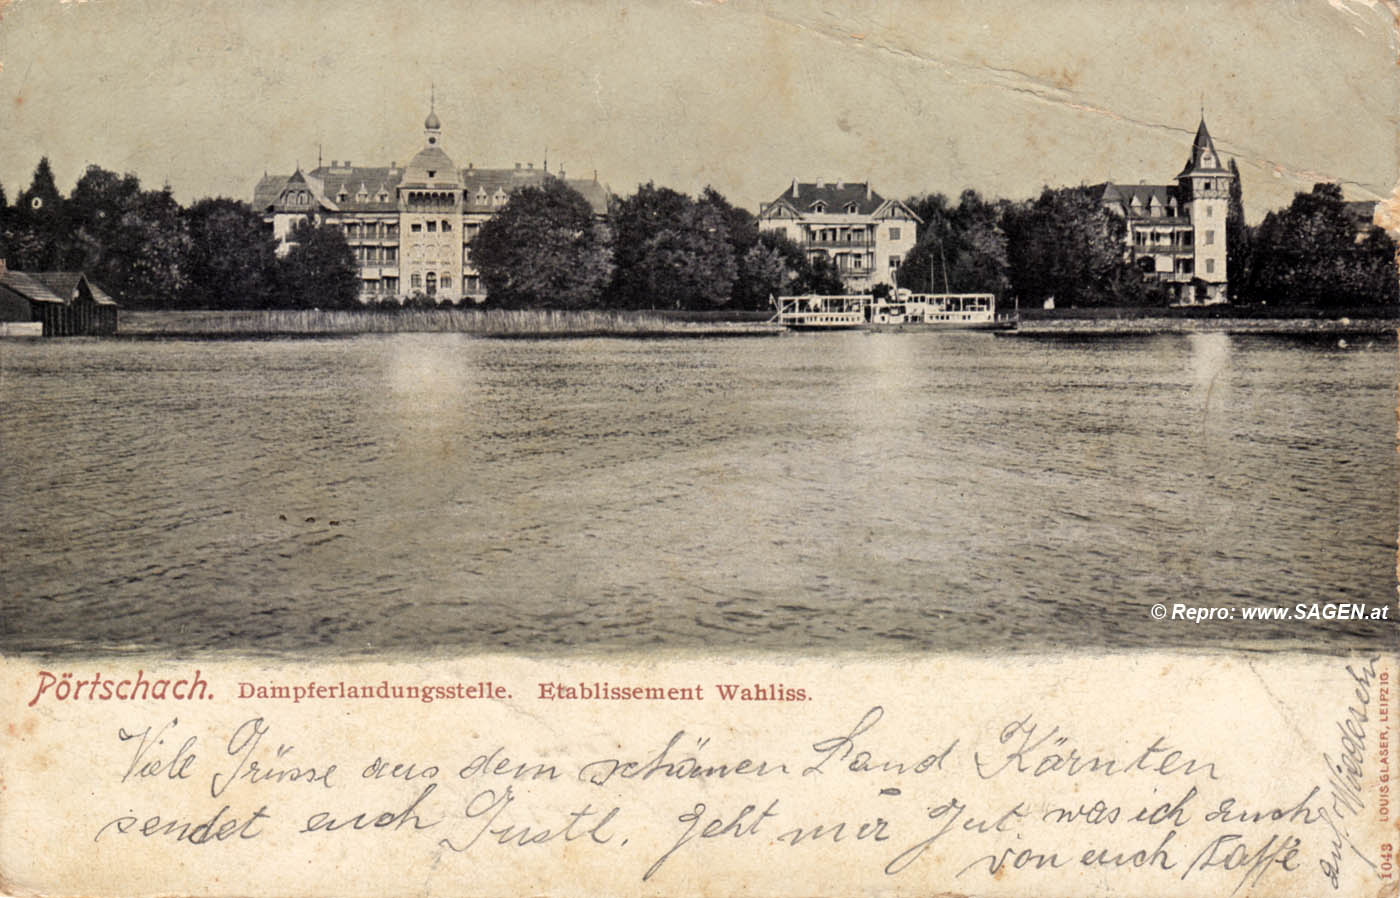 © Repro: www.SAGEN.at
Pörtschach. Dampferlandungsstelle. Etablissement Wahliss.
Viele Grüsse aus dem schönen Land Kärnten
sendet euch Gustl. geht mir gut. was ich auch
von euch
auf Wiedeseh
1043 LOUIS GLASER, LEIPZIG.